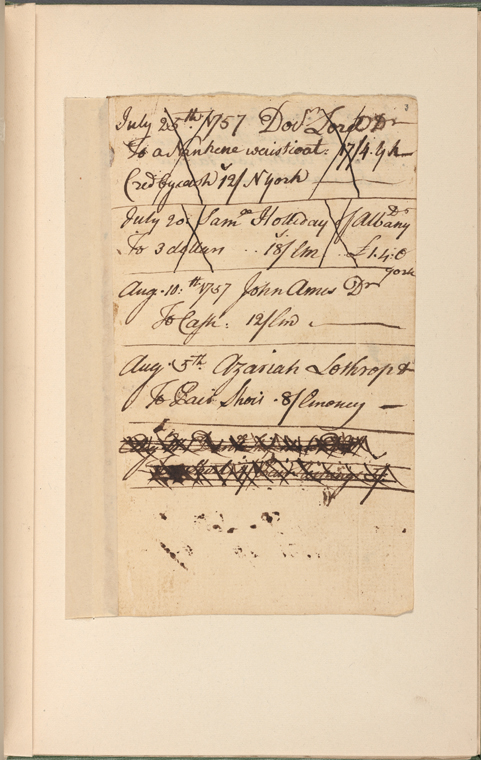 July 25th. 1757 Docr. Lord Dr
To a Nankene waistcoat. 17/4. York
Cred by cash 12/ N York
July 20. Saml. Holliday of Albany Dr
To 3 dollars .. 18/ lm £1.4.0
York
Aug. 10.th 1757 John Ames Dr
To Cash. 12/ lm
Aug. 5th. Azariah Lothrop Dr
To Pair Shois. 8/ lmoney